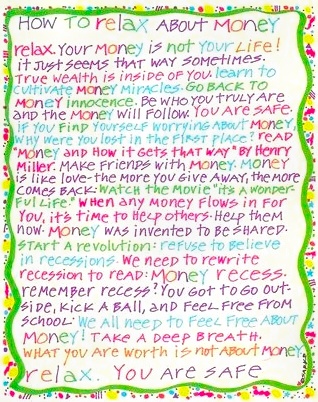 HOW TO relax ABOUT MONEY
relax. YOUR MONEY is NOT YOUR LIFE!
it JUST SEEMS THAT WAY SOMETIMES.
TRUE WEALTH is inside OF YOU. learn TO
CULTIVATE MONEY MIRACLES. GO BACK TO
MONEY INNOCENCE. Be WHO YOU TRULY Are
and THE MONEY Will Follow. YOU Are SAFE.
IF YOU FIND YOURSELF WORRYING ABOUT MONEY,
WHY WERE YOU LOST IN THE FIRST PLACE? READ
"MONEY and HOW IT GETS THAT WAY" BY HENRY
Miller. MAKE FRIENDS WITH MONEY. MONEY
is like love-THE MORE YOU GIVE AWAY, THE MORE
COMES BACK. WATCH THE MOVIE "it's A WONDER-
FUL LIFE." WHEN ANY MONEY FLOWS in FOR
YOU, it's TIME TO HELP OTHERS. HELP THEM
NOW. MONEY WAS INVENTED TO BE SHARED.
START A REVOLUTION: reFUSE TO Believe
in recessions. We need TO rewrite
recession TO read: MONEY recess.
remember recess? YOU GOT TO GO OUT-
side, KICK A BALL, and Feel Free From
SCHOOL. We All need TO Feel Free ABOUT
MONEY! TAKE A DEEP BREATH.
WHAT YOU Are WORTH is NOT ABOUT MONEY
relax. YOU Are SAFE